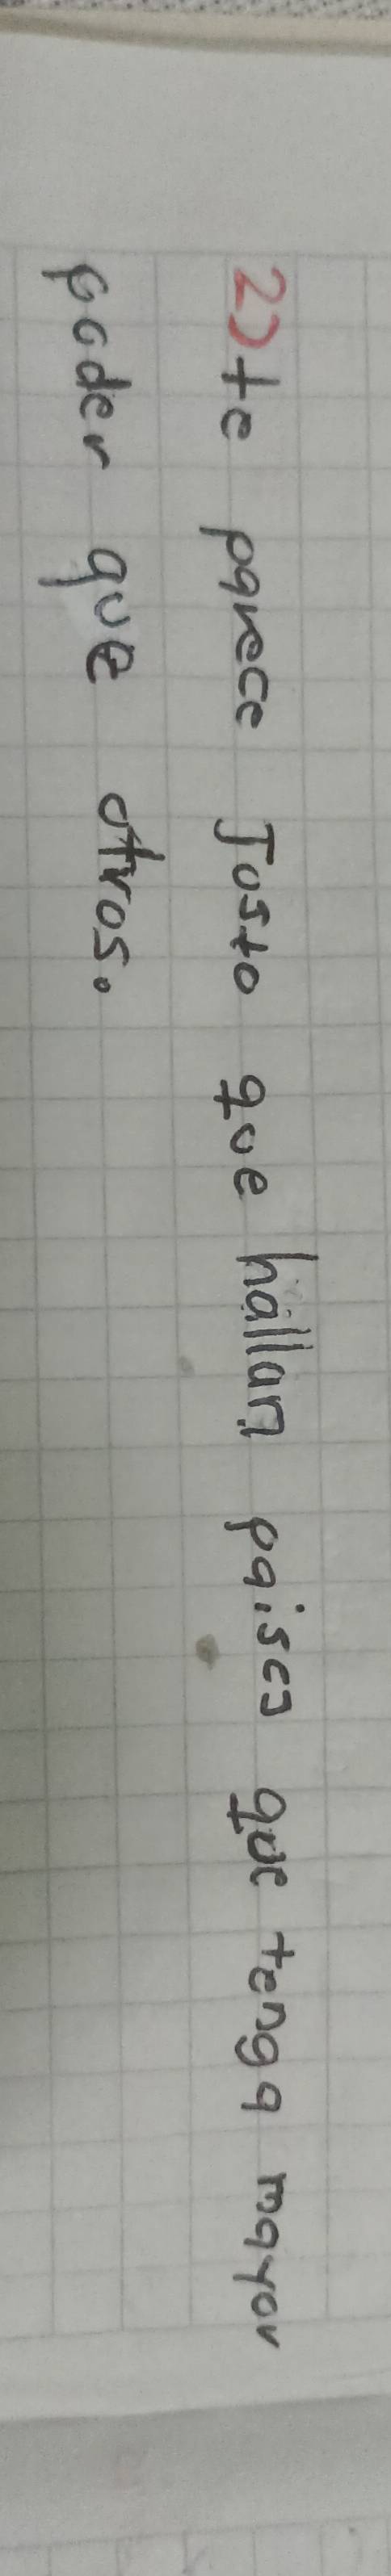 2) te parece Justo que hallan paises que tenga mayor
poder que otros.